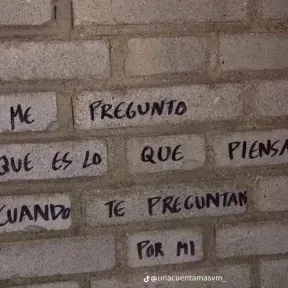 ME PREGUNTO
QUE ES LO QUE PIENSA
CUANDO TE PREGUNTAN
POR MI
@unacuentamasvm_